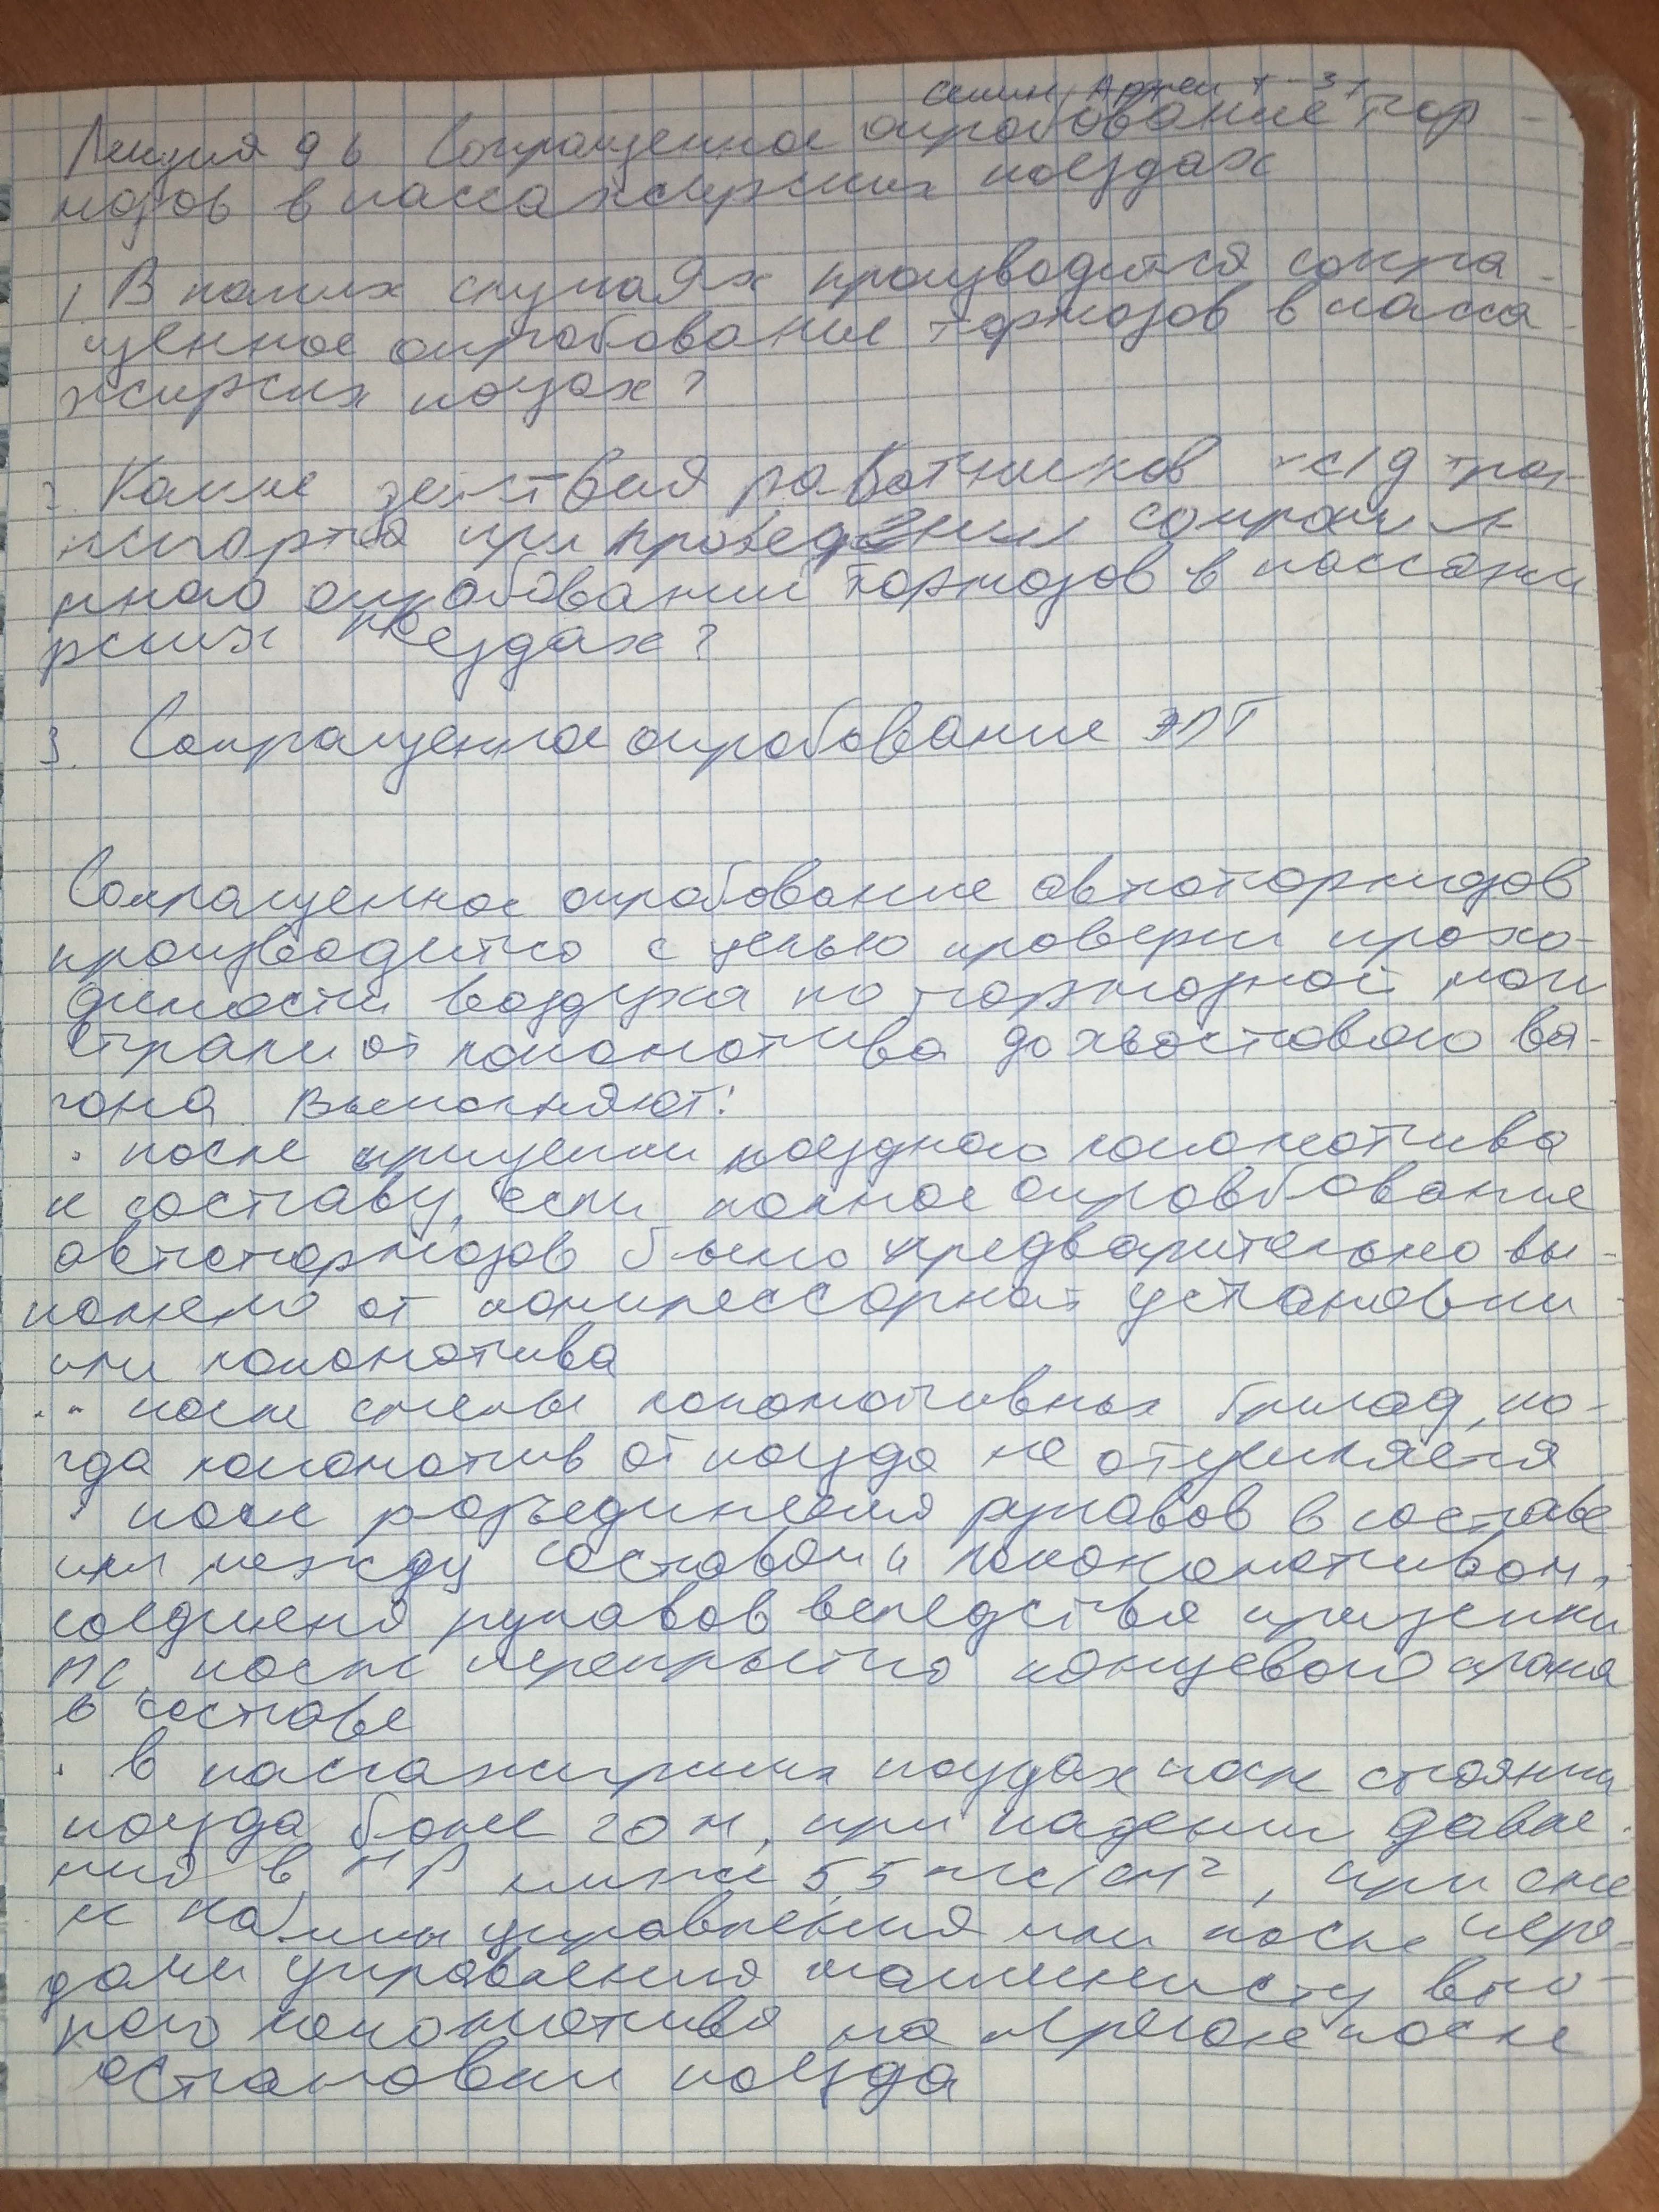 Артем Т-31
Лекция 96 Сокращенное опробование тор
мозов в пассажирских поездах
1. В каких случаях производится сокра-
щенное опробование тормозов в пасса-
жирских поездах?
2. Какие действия работников ж/д тран-
спорта при проведении сокраще
нного опробовании тормозов в пассажи
рских поездах?
3. Сокращенное опробование ЭПТ
Сокращенное опробование автотормозов
производится с целью проверки прохо-
димости воздуха по тормозной маги
страли от локомотива до хвостового ва-
гона. Выполняют:
· после прицепки поездного локомотива
к составу, если полное опробование
автотормозов было предварительно вы-
полнено от компрессорной установки
или локомотива
· после смены локомотивных бригад, ко-
гда локомотив от поезда не отцепляется
· после разъединения рукавов в составе
или между составом и локомотивом,
соединения рукавов вследствие прицепки
ПС, после перекрытия концевого крана
в составе
· в пассажирских поездах после стоянки
поезда более 20 м, при падении давле-
ния в ГР ниже 5,5 кгс/см², при сме
не кабины управления или после пере-
дачи управления машинисту вто-
рого локомотива на перегоне после
остановки поезда